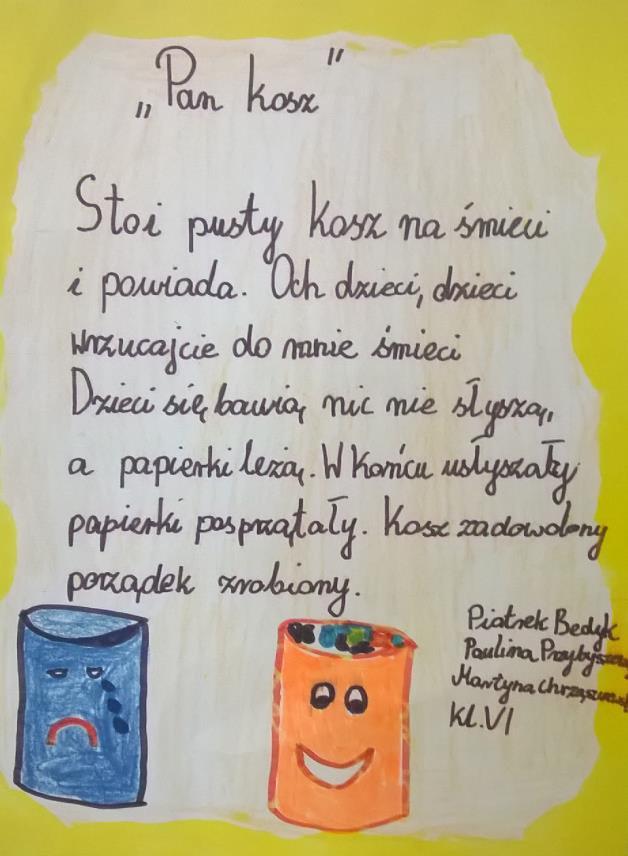 „Pan kosz”
Stoi pusty kosz na śmieci
i powiada. Och dzieci, dzieci
wrzucajcie do mnie śmieci
Dzieci się bawią nic nie słyszą,
a papierki leżą. W końcu usłyszały
papierki posprzątały. Kosz zadowolony
porządek zrobiony.
Piotrek Bedyk
Paulina
Martyna
Kl. VI